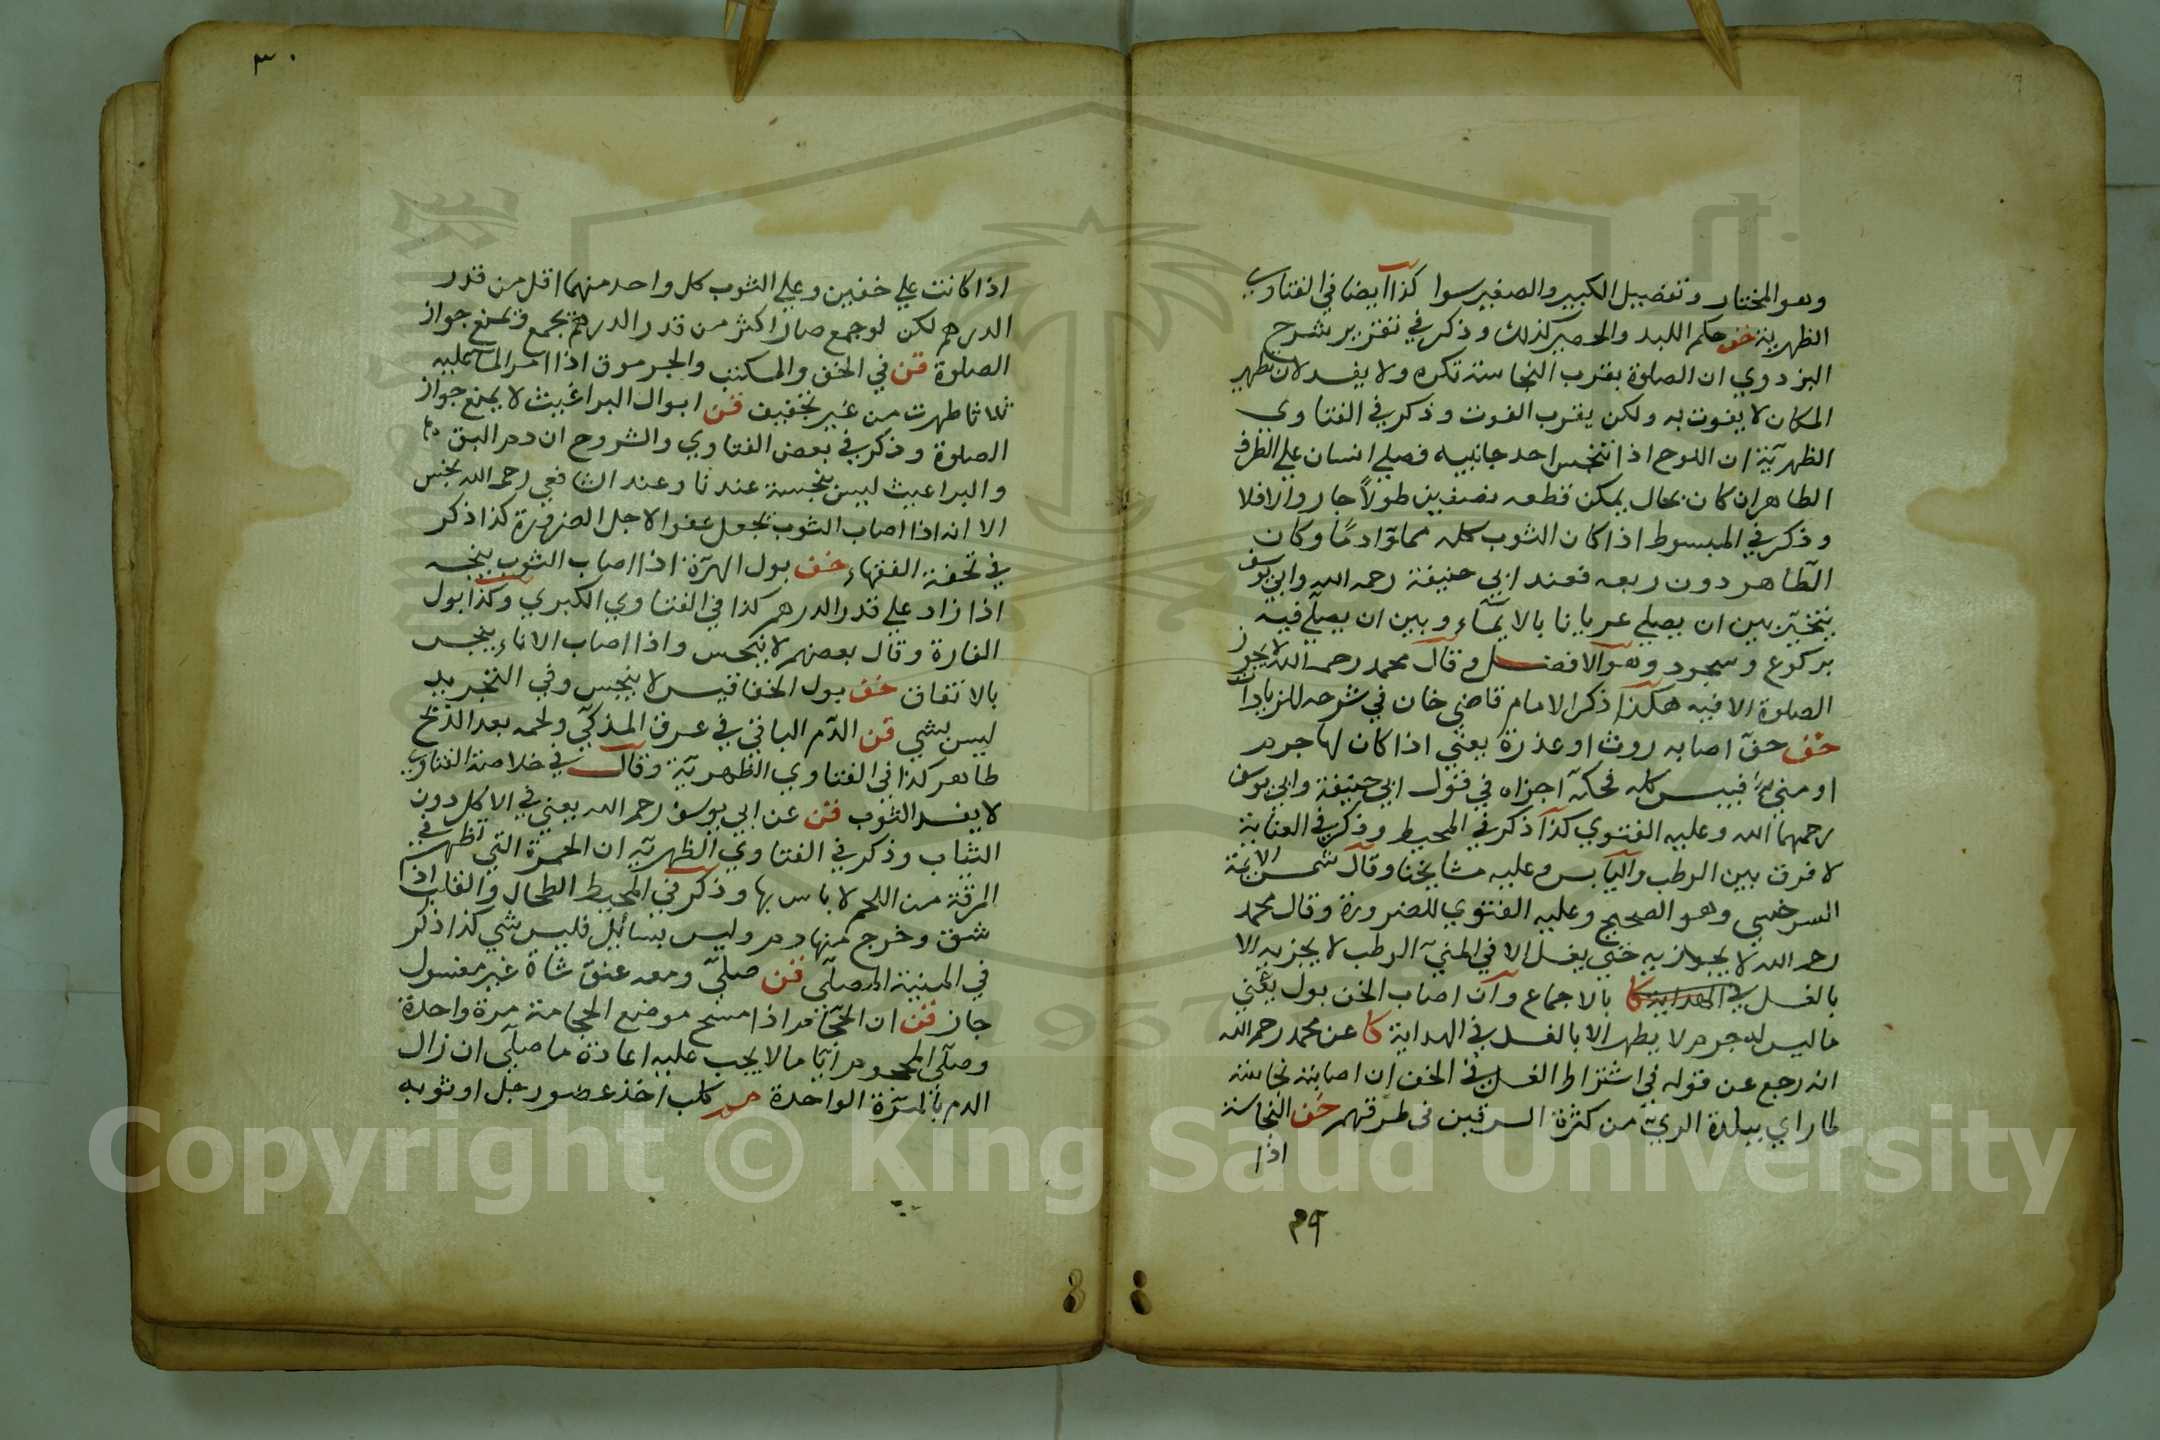 وهو المختار وتفصيل الكبير والصغير سوا كذا ايضا في الفتاوي
الظهرية خف حكم اللبد والحصير كذلك وذكر في شرح
البزدوي ان الصلوة بقرب النجاسة تكره ولا يفسد لان تطهير
المكان لا يفوت به ولكن يقرب الفوت وذكر في الفتاوي
الظهرية ان اللوح اذا تنجس احد جانبيه فصلي انسان علي الطرف
الطاهر ان كان بحال يمكن قطعه نصفين طولاً جاز والا فلا
وذكر في المبسوط اذا كان الثوب كله مملوّا دمًا وكان
الطاهر دون ربعه فعند ابي حنيفة رحمه الله وابي يوسف
يتخيّر بين ان يصلي عريانا بالايمآء وبين ان يصلّي فيه
بركوع وسجود وهو الافضل وقال محمد رحمه الله لا يجوز
الصلوة الا فيه هكذا ذكر الامام قاضي خان في شرحه للزيادات
خف خفّ اصابه روث او عذرة يعني اذا كان لها جرم
او مني فيبس كله فحكه اجزاه في قول ابي حنيفة وابي يوسف
رحمهما الله وعليه الفتوي كذا ذكر في المحيط وذكر في العتابية
لا فرق بين الرطب واليابس وعليه مشايخنا وقال شمس الائمة
السرخسي وهو الصحيح وعليه الفتوي للضرورة وقال محمد
رحمه الله لا يجوز به حتي يغسل الا في المنيّ الرطب لا يجزيه الا
بالغسل في الهداية كا بالاجماع وان اصاب الخف بول يعني
ما ليس له جرم لا يطهر الا بالغسل في الهداية كا عن محمد رحمه الله
انه رجع عن قوله في اشتراط الغسل في الخف ان اصابته نجاسة
لما راي ببلدة الريّ من كثرة السرقين في طرقهم خف النجاسة
اذا
٢٩
٣٠
اذا كانت علي خفين وعلي الثوب كل واحد منهما اقل من قدر
الدرهم لكن لوجمع صار اكثر من قدر الدرهم يجمع ويمنع جواز
الصلوة قن في الخف والمكعب والجرموق اذا امر الماء عليه
ثلاثا طهرت من غير تجفيف قن ابوال البراغيث لا يمنع جواز
الصلوة وذكر في بعض الفتاوي والشروح ان دم البق
والبراغيث ليس بنجسة عندنا وعند الشافعي رحمه الله نجس
الا انه اذا اصاب الثوب يجعل عفوا لاجل الضرورة كذا ذكر
في تحفة الفقهاء خف بول الهرة اذا اصاب الثوب ينجسه
اذا زاد علي قدر الدرهم كذا في الفتاوي الكبري وكذا بول
الفارة وقال بعضهم لا ينجس واذا اصاب الاناء ينجس
بالاتفاق خف بول الخفافيس لا ينجس وفي التجريد
ليس بشي قن الدّم الباقي في عرق المذكّي ولحمه بعد الذبح
طاهر كذا في الفتاوي الظهرية وقال في خلاصة الفتاوي
لا يفسد الثوب قن عن ابي يوسف رحمه الله يعفي في الاكل دون
الثياب وذكر في الفتاوي الظهرية ان الحمرة التي تظهر في
المرقة من اللحم لا باس بها وذكر في المحيط الطحال والقلب اذا
شق وخرج منها دم وليس بسائل فليس شي كذا ذكر
في المنية المصلّي قن صليّ ومعه عنق شاة غير مغسول
جاز قن ان الحجّام اذا مسح موضع الحجامة مرة واحدة
وصلّي المحجوم ايّاما لا يجب عليه اعادة ما صلّي ان زال
الدم بالمرّة الواحدة كلب اخذ عضو رجل او ثوبه
Copyright © King Saud University
1957